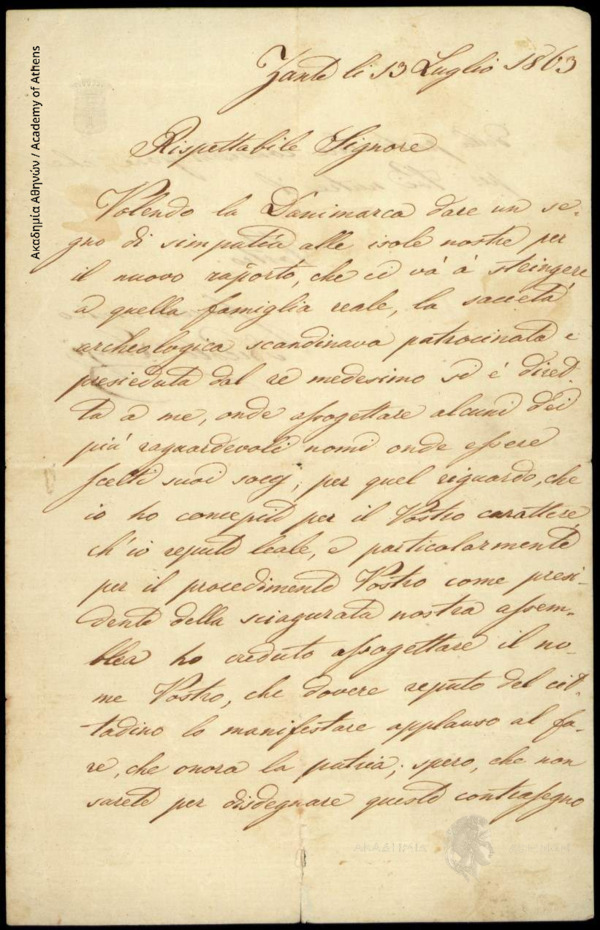 Ακαδημία Αθηνών / Academy of Athens
Zante li 13 Luglio 1863
Rispettabile Signore
Volendo la Danimarca dare un se-
gno di simpatia alle isole nostre per
il nuovo raporto, che ci và à stringere
a quella famiglia reale, la società
archeologica scandinava patrocinata e
presieduta dal re medesimo si è diret-
ta a me, onde assogettare alcuni dei
più raguardevoli nomi onde essere
scelti suoi socj; per quel riguardo, che
io ho concepito per il Vostro carattere,
ch'io reputo leale, e particolarmente
per il procedimento Vostro come presi-
dente della sciagurata nostra assem-
blea ho creduto assogettare il no-
me Vostro, che dovere reputo del cit-
tadino lo manifestare applauso al fa-
re, che onora la patria; spero, che non
sarete per disdegnare questo contrassegno
ΑΚΑΔΗΜΙΑ ΑΘΗΝΩΝ